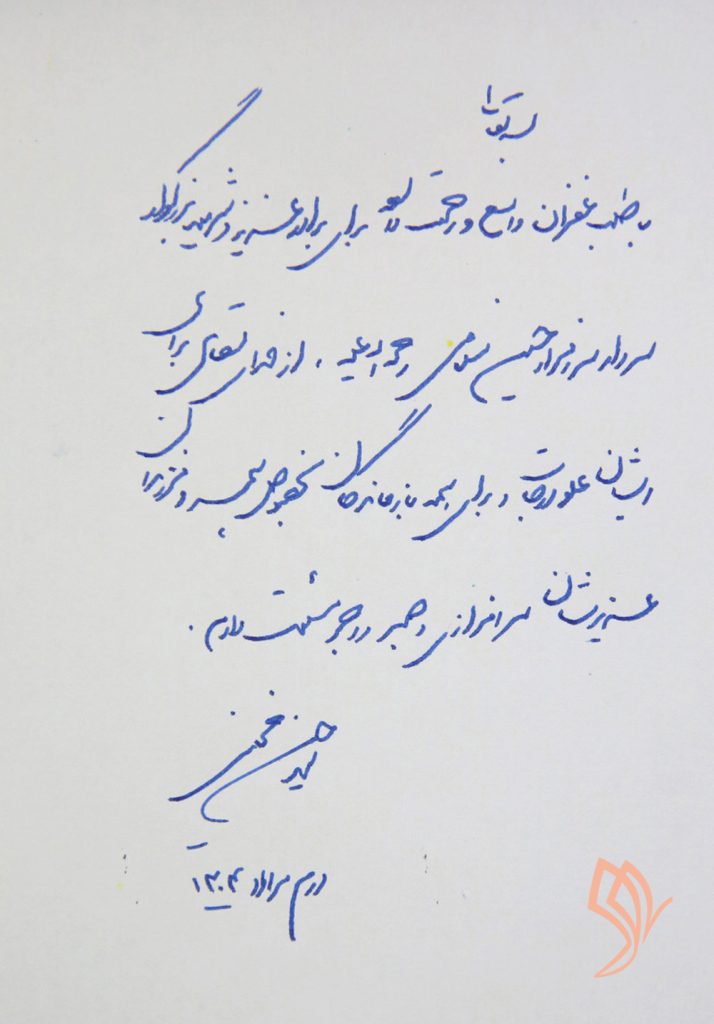 بسمه تعالی
با طلب غفران واسع و رحمت واسعه برای برادر عزیز و شهید بزرگوار
سردار سرفراز حسین سلامی رحمه الله علیه ، از خدای تعالی برای
ایشان علو درجات و برای همه بازماندگان بخصوص همسر و فرزندان
عزیزشان سرافرازی و صبر و اجر مسئلت دارم .
سید حسن خمینی
دوم مرداد ۱۴۰۴